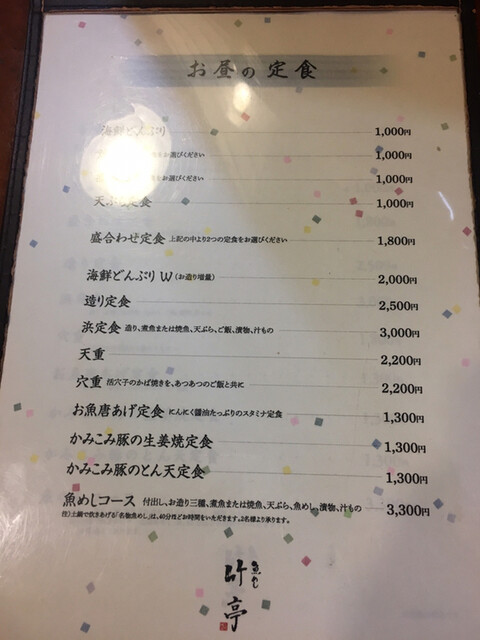 お昼の定食
海鮮どんぶり 1,000円
をお選びください 1,000円
をお選びください 1,000円
天ぷら定食 1,000円
盛合わせ定食 上記の中より2つの定食をお選びください 1,800円
海鮮どんぶりW(お造り増量) 2,000円
造り定食 2,500円
浜定食 造り、煮魚または焼魚、天ぷら、ご飯、漬物、汁もの 3,000円
天重 2,200円
穴重 活穴子のかば焼きを、あつあつのご飯と共に 2,200円
お魚唐あげ定食 にんにく醤油たっぷりのスタミナ定食 1,300円
かみこみ豚の生姜焼定食 1,300円
かみこみ豚のとん天定食 1,300円
魚めしコース 付出し、お造り三種、煮魚または焼魚、天ぷら、魚めし、漬物、汁もの 3,300円
注)土鍋で炊きあげる「名物魚めし」は、40分ほどお時間をいただきます。2名様より承ります。
魚めし
亭